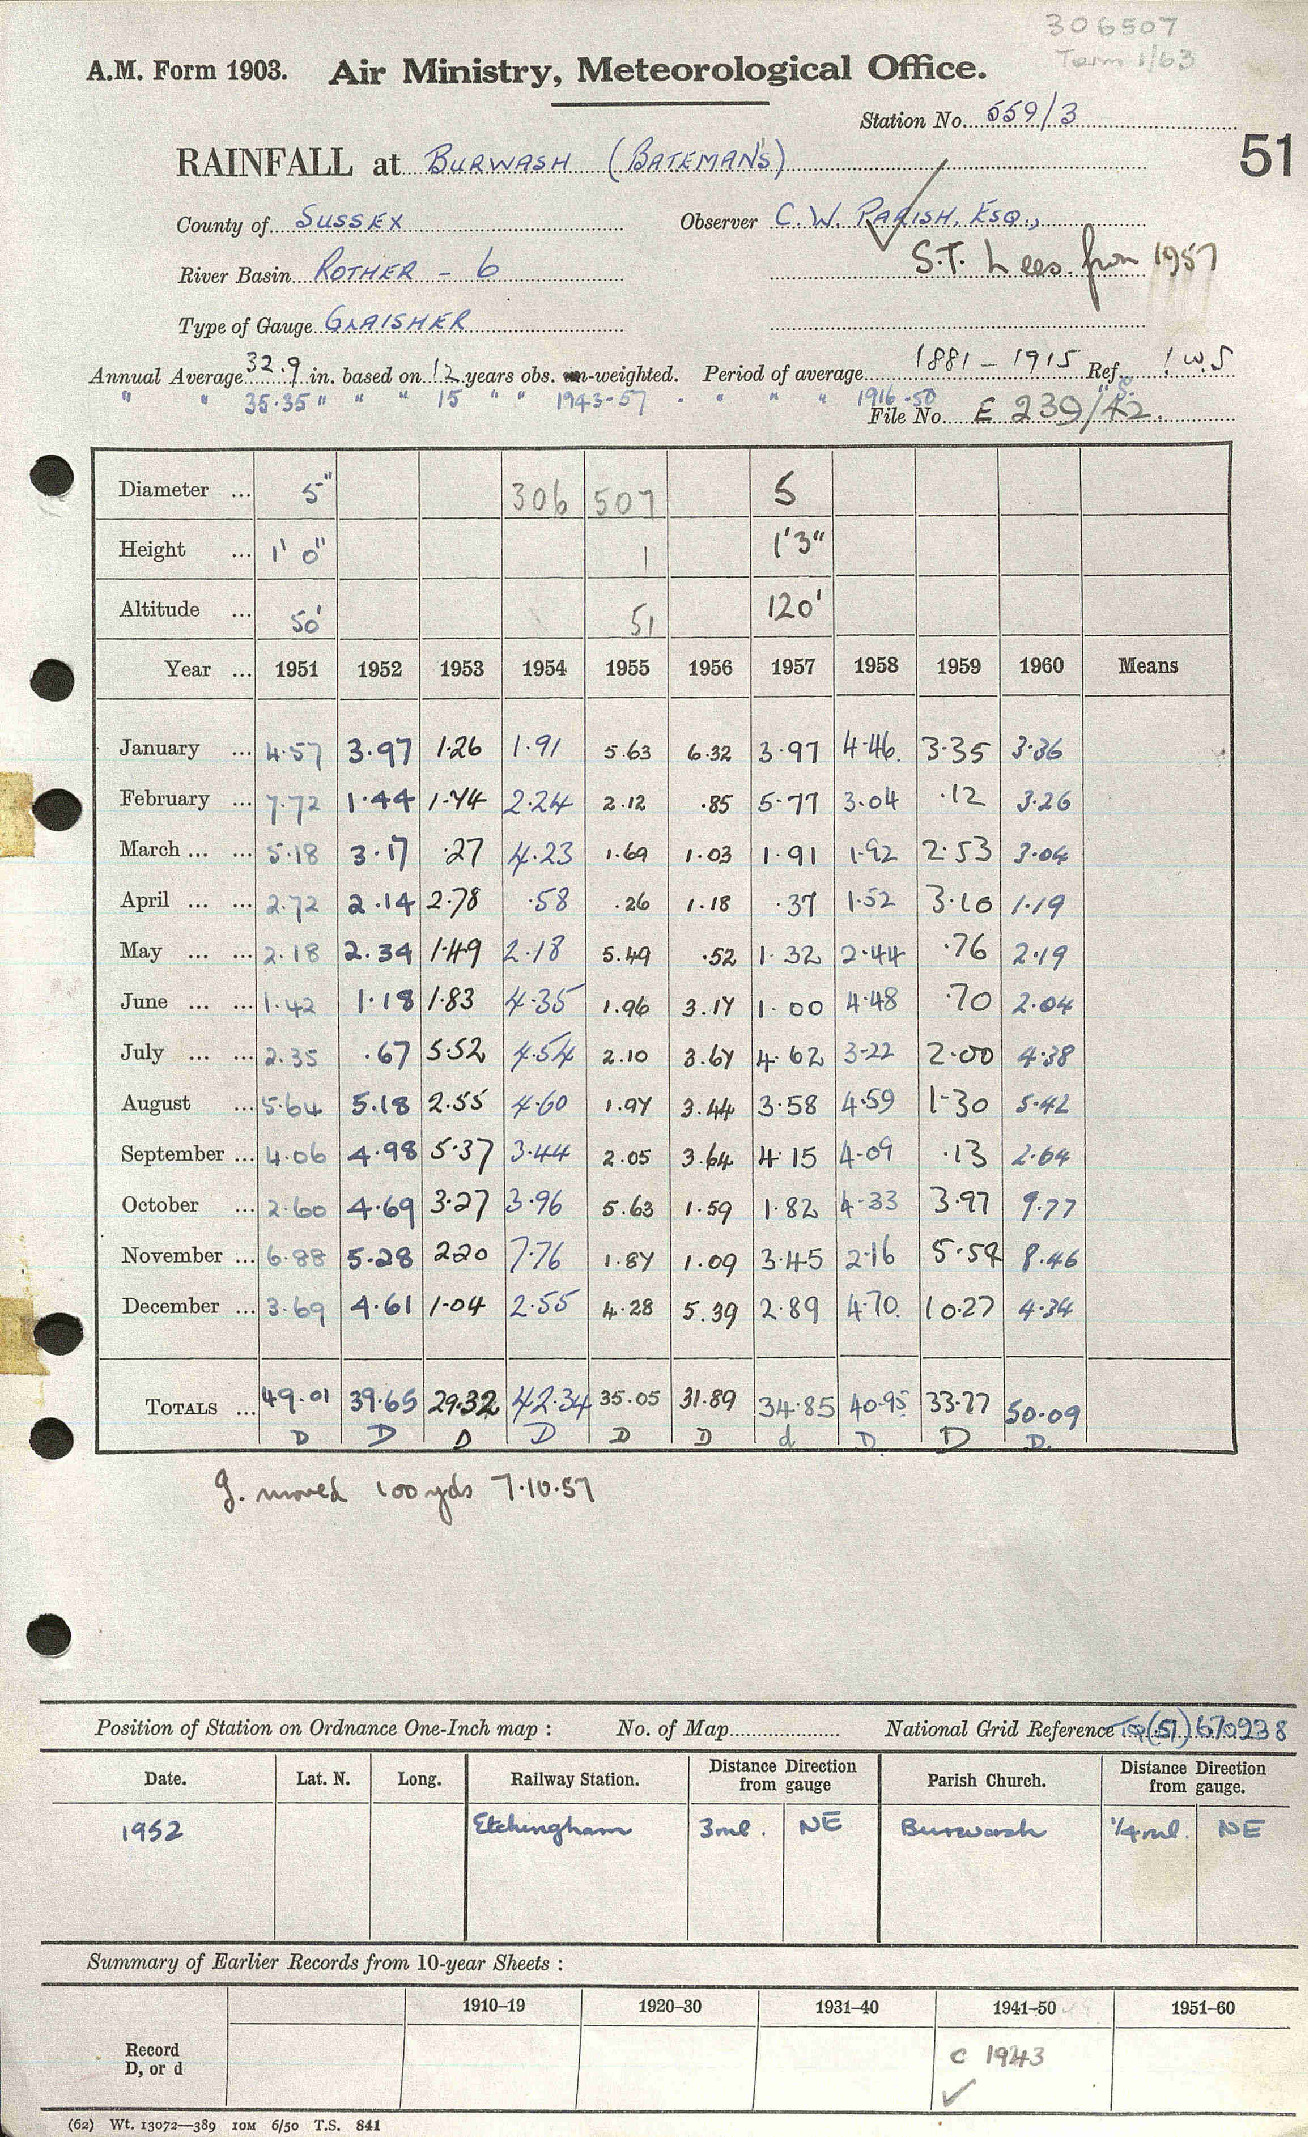 306507
Term 1/63
A.M. Form 1903. Air Ministry, Meteorological Office.
Station No. 559/3
51
RAINFALL at BURWASH (BATEMAN'S)
County of SUSSEX Observer C. W. PARISH, ESQ.,
S.T. Lees. from 1957
River Basin ROTHER - 6
Type of Gauge GLAISHER
Annual Average 32.9 in. based on 12 years obs. un-weighted. Period of average 1881 - 1915 Ref.
" " 35.35 " " " 15 " " 1943-57 " " " 1916-50
File No. E 239/42.
Diameter ... 5" 306 507 5
Height ... 1' 0" 1 1'3"
Altitude ... 50' 51 120'
Year ... 1951 1952 1953 1954 1955 1956 1957 1958 1959 1960 Means
January ... 4.57 3.97 1.26 1.91 5.63 6.32 3.97 4.46. 3.35 3.36
February ... 7.72 1.44 1.74 2.24 2.12 .85 5.77 3.04 .12 3.26
March ... ... 5.18 3.17 .27 4.23 1.69 1.03 1.91 1.92 2.53 3.04
April ... ... 2.72 2.14 2.78 .58 .26 1.18 .37 1.52 3.10 1.19
May ... ... 2.18 2.34 1.49 2.18 5.49 .52 1.32 2.44 .76 2.19
June ... ... 1.42 1.18 1.83 4.35 1.96 3.17 1.00 4.48 .70 2.04
July ... ... 2.35 .67 5.52 4.54 2.10 3.67 4.62 3.22 2.00 4.38
August ... 5.64 5.18 2.55 4.60 1.97 3.44 3.58 4.59 1.30 5.42
September ... 4.06 4.98 5.37 3.44 2.05 3.64 4.15 4.09 .13 2.64
October ... 2.60 4.69 3.27 3.96 5.63 1.59 1.82 4.33 3.97 9.77
November ... 6.88 5.28 2.20 7.76 1.87 1.09 3.45 2.16 5.54 8.46
December ... 3.69 4.61 1.04 2.55 4.28 5.39 2.89 4.70. 10.27 4.34
TOTALS ... 49.01 39.65 29.32 42.34 35.05 31.89 34.85 40.95 33.77 50.09
D D D D D D d D D D.
g. moved 100 yds 7.10.57
Position of Station on Ordnance One-Inch map : No. of Map National Grid Reference TQ(51)670238
Date. Lat. N. Long. Railway Station. Distance Direction from gauge Parish Church. Distance Direction from gauge.
1952 Etchingham 3ml. NE Burwash 1/4 ml. NE
Summary of Earlier Records from 10-year Sheets :
1910–19 1920–30 1931–40 1941–50 1951–60
Record
D, or d
c 1943
(62) Wt. 13072—389 10M 6/50 T.S. 841